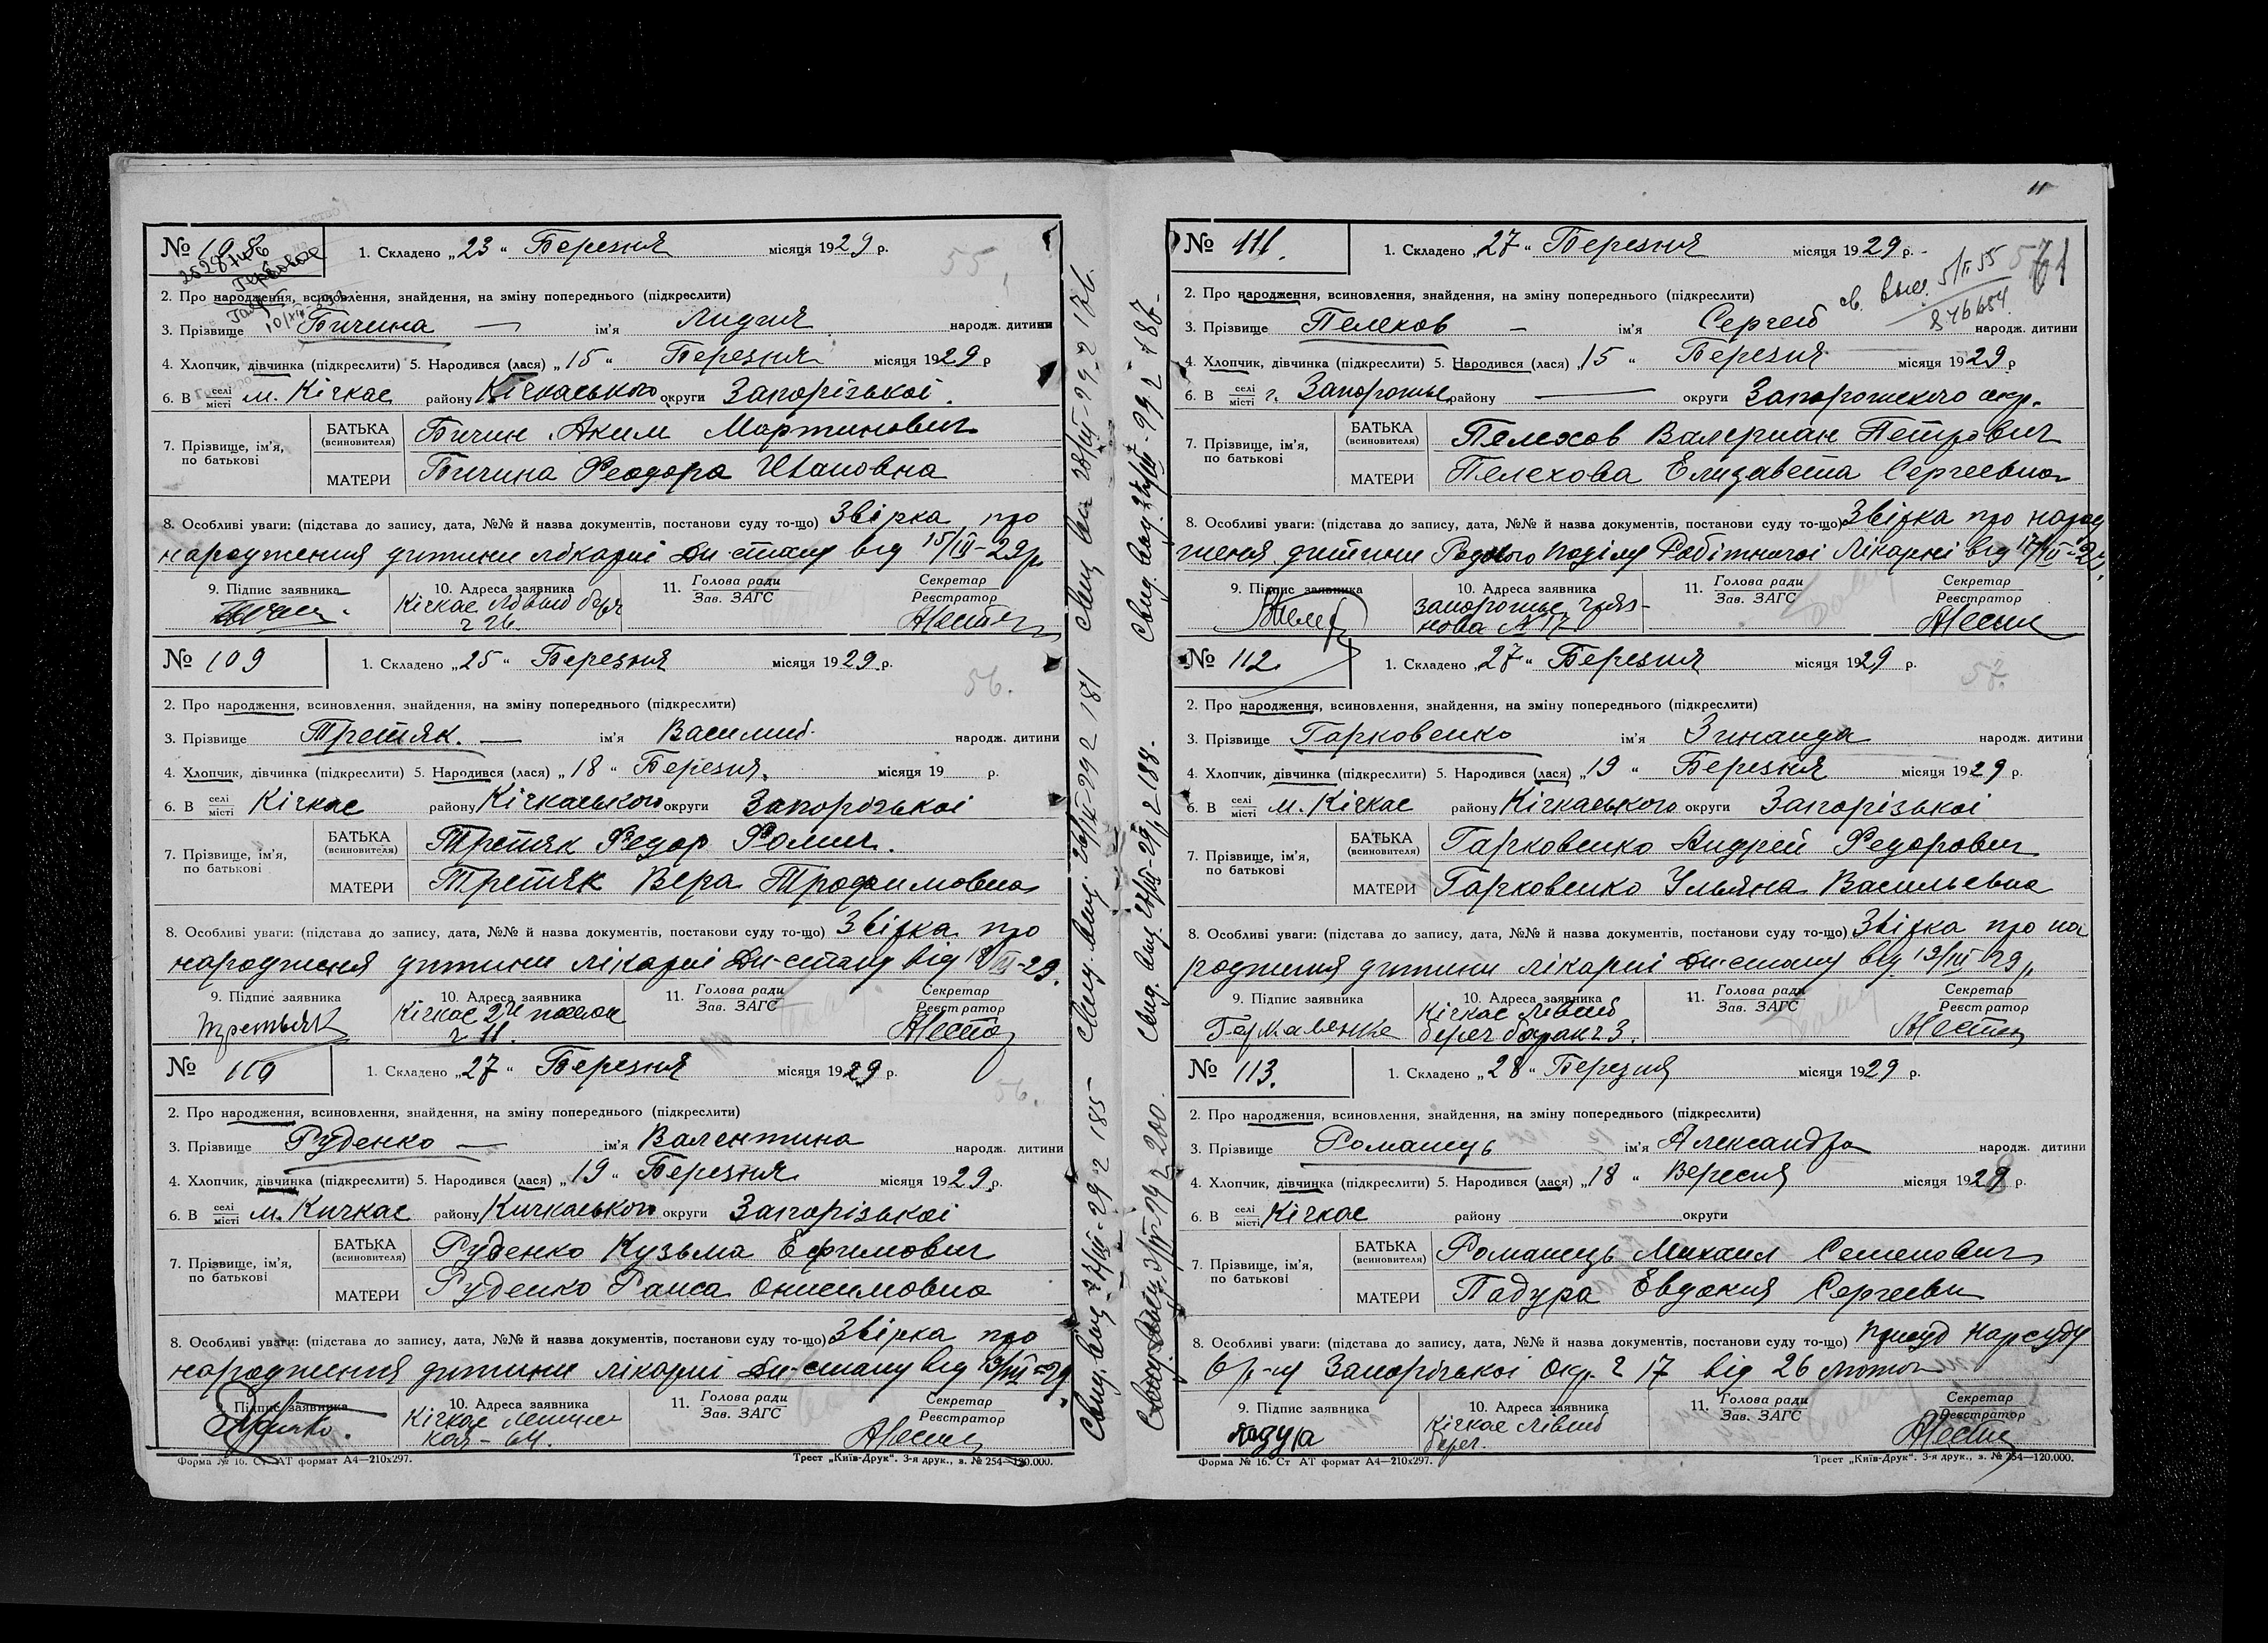 № 108
1. Складено „23“ Березня місяця 1929 р.
55
2. Про народження, всиновлення, знайдення, на зміну попереднього (підкреслити)
3. Прізвище Бичина — ім'я Лидия народж. дитини
4. Хлопчик, дівчинка (підкреслити) 5. Народився (лася) „15“ Березня місяця 1929 р
6. В селі місті м. Кічкас району Кічкаського округи Запорізькоі.
7. Прізвище, ім'я, по батькові
БАТЬКА (всиновителя) Бичин Аким Мартинович
МАТЕРИ Бичина Феодора Ивановна
8. Особливі уваги: (підстава до запису, дата, №№ й назва документів, постанови суду то-що) Звірка про
народження дитини лікарні Дн-стану від 15/III-29р.
9. Підпис заявника 10. Адреса заявника 11. Голова ради Зав. ЗАГС Секретар Реєстратор
Кічкас Лівий берг
№ 109
1. Складено „25“ Березня місяця 1929 р.
56.
2. Про народження, всиновлення, знайдення, на зміну попереднього (підкреслити)
3. Прізвище Третяк. — ім'я Василий народж. дитини
4. Хлопчик, дівчинка (підкреслити) 5. Народився (лася) „18“ Березня. місяця 19 р.
6. В селі місті Кічкас району Кічкаського округи Запорізькоі
7. Прізвище, ім'я, по батькові
БАТЬКА (всиновителя) Третяк Федор Фомич.
МАТЕРИ Третяк Вера Трофимовна
8. Особливі уваги: (підстава до запису, дата, №№ й назва документів, постанови суду то-що) Звірка про
народження дитини лікарні Дн-стану від 18/III-29.
9. Підпис заявника 10. Адреса заявника 11. Голова ради Зав. ЗАГС Секретар Реєстратор
Третьяк Кічкас
№ 110
1. Складено „27“ Березня місяця 1929 р.
56.
2. Про народження, всиновлення, знайдення, на зміну попереднього (підкреслити)
3. Прізвище Руденко — ім'я Валентина народж. дитини
4. Хлопчик, дівчинка (підкреслити) 5. Народився (лася) „19“ Березня місяця 1929 р.
6. В селі місті м. Кичкас району Кичкаського округи Запорізькоі
7. Прізвище, ім'я, по батькові
БАТЬКА (всиновителя) Руденко Кузьма Ефимович
МАТЕРИ Руденко Раиса Онисимовна
8. Особливі уваги: (підстава до запису, дата, №№ й назва документів, постанови суду то-що) Звірка про
народження дитини лікарні Дн-стану від 19/III-29
9. Підпис заявника 10. Адреса заявника 11. Голова ради Зав. ЗАГС Секретар Реєстратор
Кічкас
Форма № 16. Ст АТ формат А4—210х297. Трест „Київ-Друк“. 3-я друк., з. № 254—120.000.
11
№ 111.
1. Складено „27“ Березня місяця 1929 р.
св. выд. 5/II 55
2. Про народження, всиновлення, знайдення, на зміну попереднього (підкреслити)
3. Прізвище Пелехов — ім'я Сергей народж. дитини
4. Хлопчик, дівчинка (підкреслити) 5. Народився (лася) „15“ Березня місяця 1929 р
6. В селі місті г. Запорожье району — округи Запорожского окр.
7. Прізвище, ім'я, по батькові
БАТЬКА (всиновителя) Пелехов Валериан Петрович
МАТЕРИ Пелехова Елизавета Сергеевна
8. Особливі уваги: (підстава до запису, дата, №№ й назва документів, постанови суду то-що) Звірка про народ
ження дитини поділу Робітничоі Лікарні від
9. Підпис заявника 10. Адреса заявника 11. Голова ради Зав. ЗАГС Секретар Реєстратор
Запорожье
№ 112.
1. Складено „27“ Березня місяця 1929 р.
57.
2. Про народження, всиновлення, знайдення, на зміну попереднього (підкреслити)
3. Прізвище Гарковенко ім'я Зинаида народж. дитини
4. Хлопчик, дівчинка (підкреслити) 5. Народився (лася) „19“ Березня місяця 1929 р.
6. В селі місті м. Кічкас району Кічкаського округи Запорізькоі
7. Прізвище, ім'я, по батькові
БАТЬКА (всиновителя) Гарковенко Андрей Федорович
МАТЕРИ Гарковенко Ульяна Васильевна
8. Особливі уваги: (підстава до запису, дата, №№ й назва документів, постанови суду то-що) Звірка про на
родження дитини лікарні Дн-стану від 19/III 29р.
9. Підпис заявника 10. Адреса заявника 11. Голова ради Зав. ЗАГС Секретар Реєстратор
Кічкас Лівий
берег барак 23.
№ 113.
1. Складено „28“ Березня місяця 1929 р.
2. Про народження, всиновлення, знайдення, на зміну попереднього (підкреслити)
3. Прізвище Романець ім'я Александра народж. дитини
4. Хлопчик, дівчинка (підкреслити) 5. Народився (лася) „18“ Вересня місяця 1928 р.
6. В селі місті Кічкас району округи
7. Прізвище, ім'я, по батькові
БАТЬКА (всиновителя) Романець Михаил Семенович
МАТЕРИ Падура Евдокия Сергеевн
8. Особливі уваги: (підстава до запису, дата, №№ й назва документів, постанови суду то-що) присуд нарсуду
Запорізькоі окр. 17 від 26 лютого
9. Підпис заявника 10. Адреса заявника 11. Голова ради Зав. ЗАГС Секретар Реєстратор
падура Кічкас Лівий
берег.
Форма № 16. Ст АТ формат А4—210х297. Трест „Київ-Друк“. 3-я друк., з. № 254—120.000.